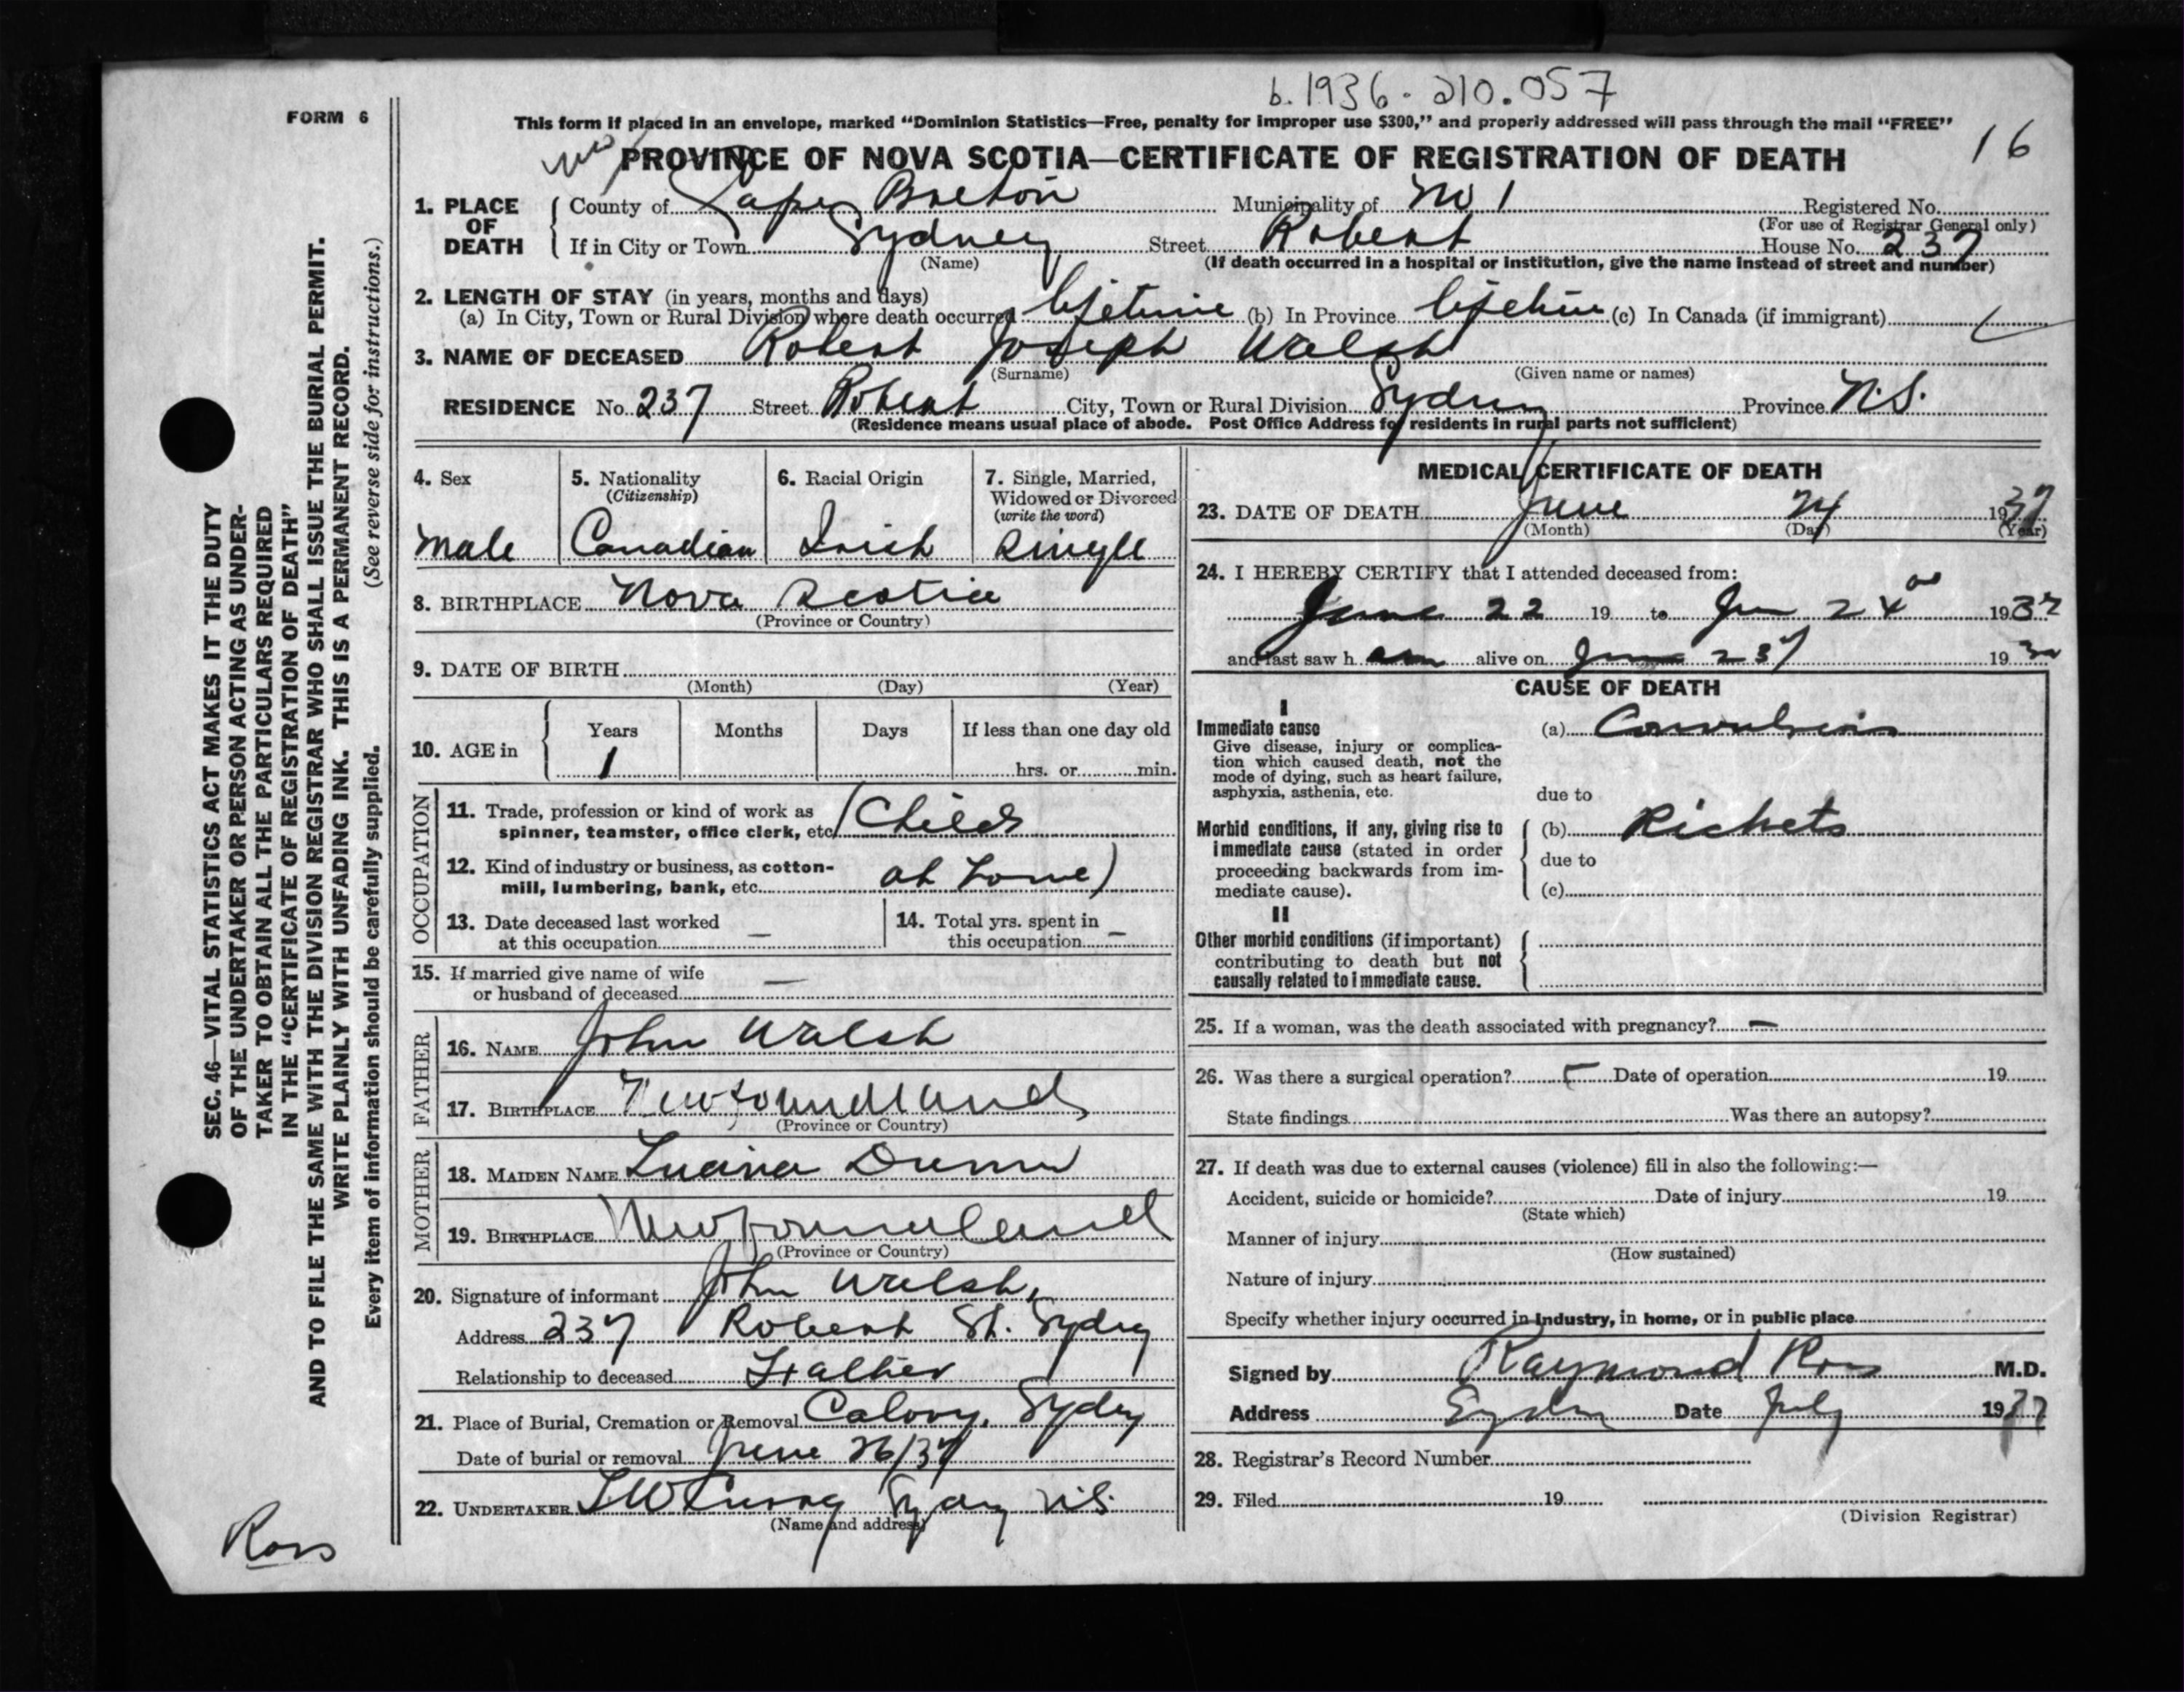 b. 1936 - 210.057
FORM 6
This form if placed in an envelope, marked “Dominion Statistics—Free, penalty for improper use $300,” and properly addressed will pass through the mail “FREE”
16
PROVINCE OF NOVA SCOTIA—CERTIFICATE OF REGISTRATION OF DEATH
1. PLACE OF DEATH
County of Cape Breton Municipality of No 1 Registered No.
(For use of Registrar General only)
If in City or Town Sydney Street Robert House No. 237
(Name) (If death occurred in a hospital or institution, give the name instead of street and number)
2. LENGTH OF STAY (in years, months and days)
(a) In City, Town or Rural Division where death occurred lifetime (b) In Province lifetime (c) In Canada (if immigrant)
3. NAME OF DECEASED Robert Joseph Walsh
(Surname) (Given name or names)
RESIDENCE No. 237 Street Robert City, Town or Rural Division Sydney Province N.S.
(Residence means usual place of abode. Post Office Address for residents in rural parts not sufficient)
4. Sex 5. Nationality 6. Racial Origin 7. Single, Married,
(Citizenship) Widowed or Divorced
(write the word)
Male Canadian Irish Single
8. BIRTHPLACE Nova Scotia
(Province or Country)
9. DATE OF BIRTH
(Month) (Day) (Year)
10. AGE in Years Months Days If less than one day old
1 hrs. or min.
OCCUPATION
11. Trade, profession or kind of work as
spinner, teamster, office clerk, etc. (Child
12. Kind of industry or business, as cotton-
mill, lumbering, bank, etc. at home)
13. Date deceased last worked
at this occupation —
14. Total yrs. spent in
this occupation —
15. If married give name of wife
or husband of deceased —
FATHER
16. NAME John Walsh
17. BIRTHPLACE Newfoundland
(Province or Country)
MOTHER
18. MAIDEN NAME
19. BIRTHPLACE Newfoundland
(Province or Country)
20. Signature of informant John Walsh,
Address 237 Robert St. Sydney
Relationship to deceased Father
21. Place of Burial, Cremation or Removal Calvary, Sydney
Date of burial or removal June 26/37
22. UNDERTAKER Sydney N.S.
(Name and address)
MEDICAL CERTIFICATE OF DEATH
23. DATE OF DEATH June 24 1937
(Month) (Day) (Year)
24. I HEREBY CERTIFY that I attended deceased from:
June 22 19 to June 24 1937
and last saw h alive on June 23 193
CAUSE OF DEATH
I
Immediate cause (a) Convulsions
Give disease, injury or complica-
tion which caused death, not the
mode of dying, such as heart failure,
asphyxia, asthenia, etc.
due to
Morbid conditions, if any, giving rise to
immediate cause (stated in order
proceeding backwards from im-
mediate cause).
(b) Rickets
due to
(c)
II
Other morbid conditions (if important)
contributing to death but not
causally related to immediate cause.
25. If a woman, was the death associated with pregnancy? —
26. Was there a surgical operation? Date of operation 19
State findings Was there an autopsy?
27. If death was due to external causes (violence) fill in also the following:—
Accident, suicide or homicide? Date of injury 19
(State which)
Manner of injury
(How sustained)
Nature of injury
Specify whether injury occurred in Industry, in home, or in public place
Signed by Raymond Ross M.D.
Address Sydney Date July 1937
28. Registrar's Record Number
29. Filed 19
(Division Registrar)
SEC. 46—VITAL STATISTICS ACT MAKES IT THE DUTY
OF THE UNDERTAKER OR PERSON ACTING AS UNDER-
TAKER TO OBTAIN ALL THE PARTICULARS REQUIRED
IN THE “CERTIFICATE OF REGISTRATION OF DEATH”
AND TO FILE THE SAME WITH THE DIVISION REGISTRAR WHO SHALL ISSUE THE BURIAL PERMIT.
WRITE PLAINLY WITH UNFADING INK. THIS IS A PERMANENT RECORD.
Every item of information should be carefully supplied. (See reverse side for instructions.)
Ross